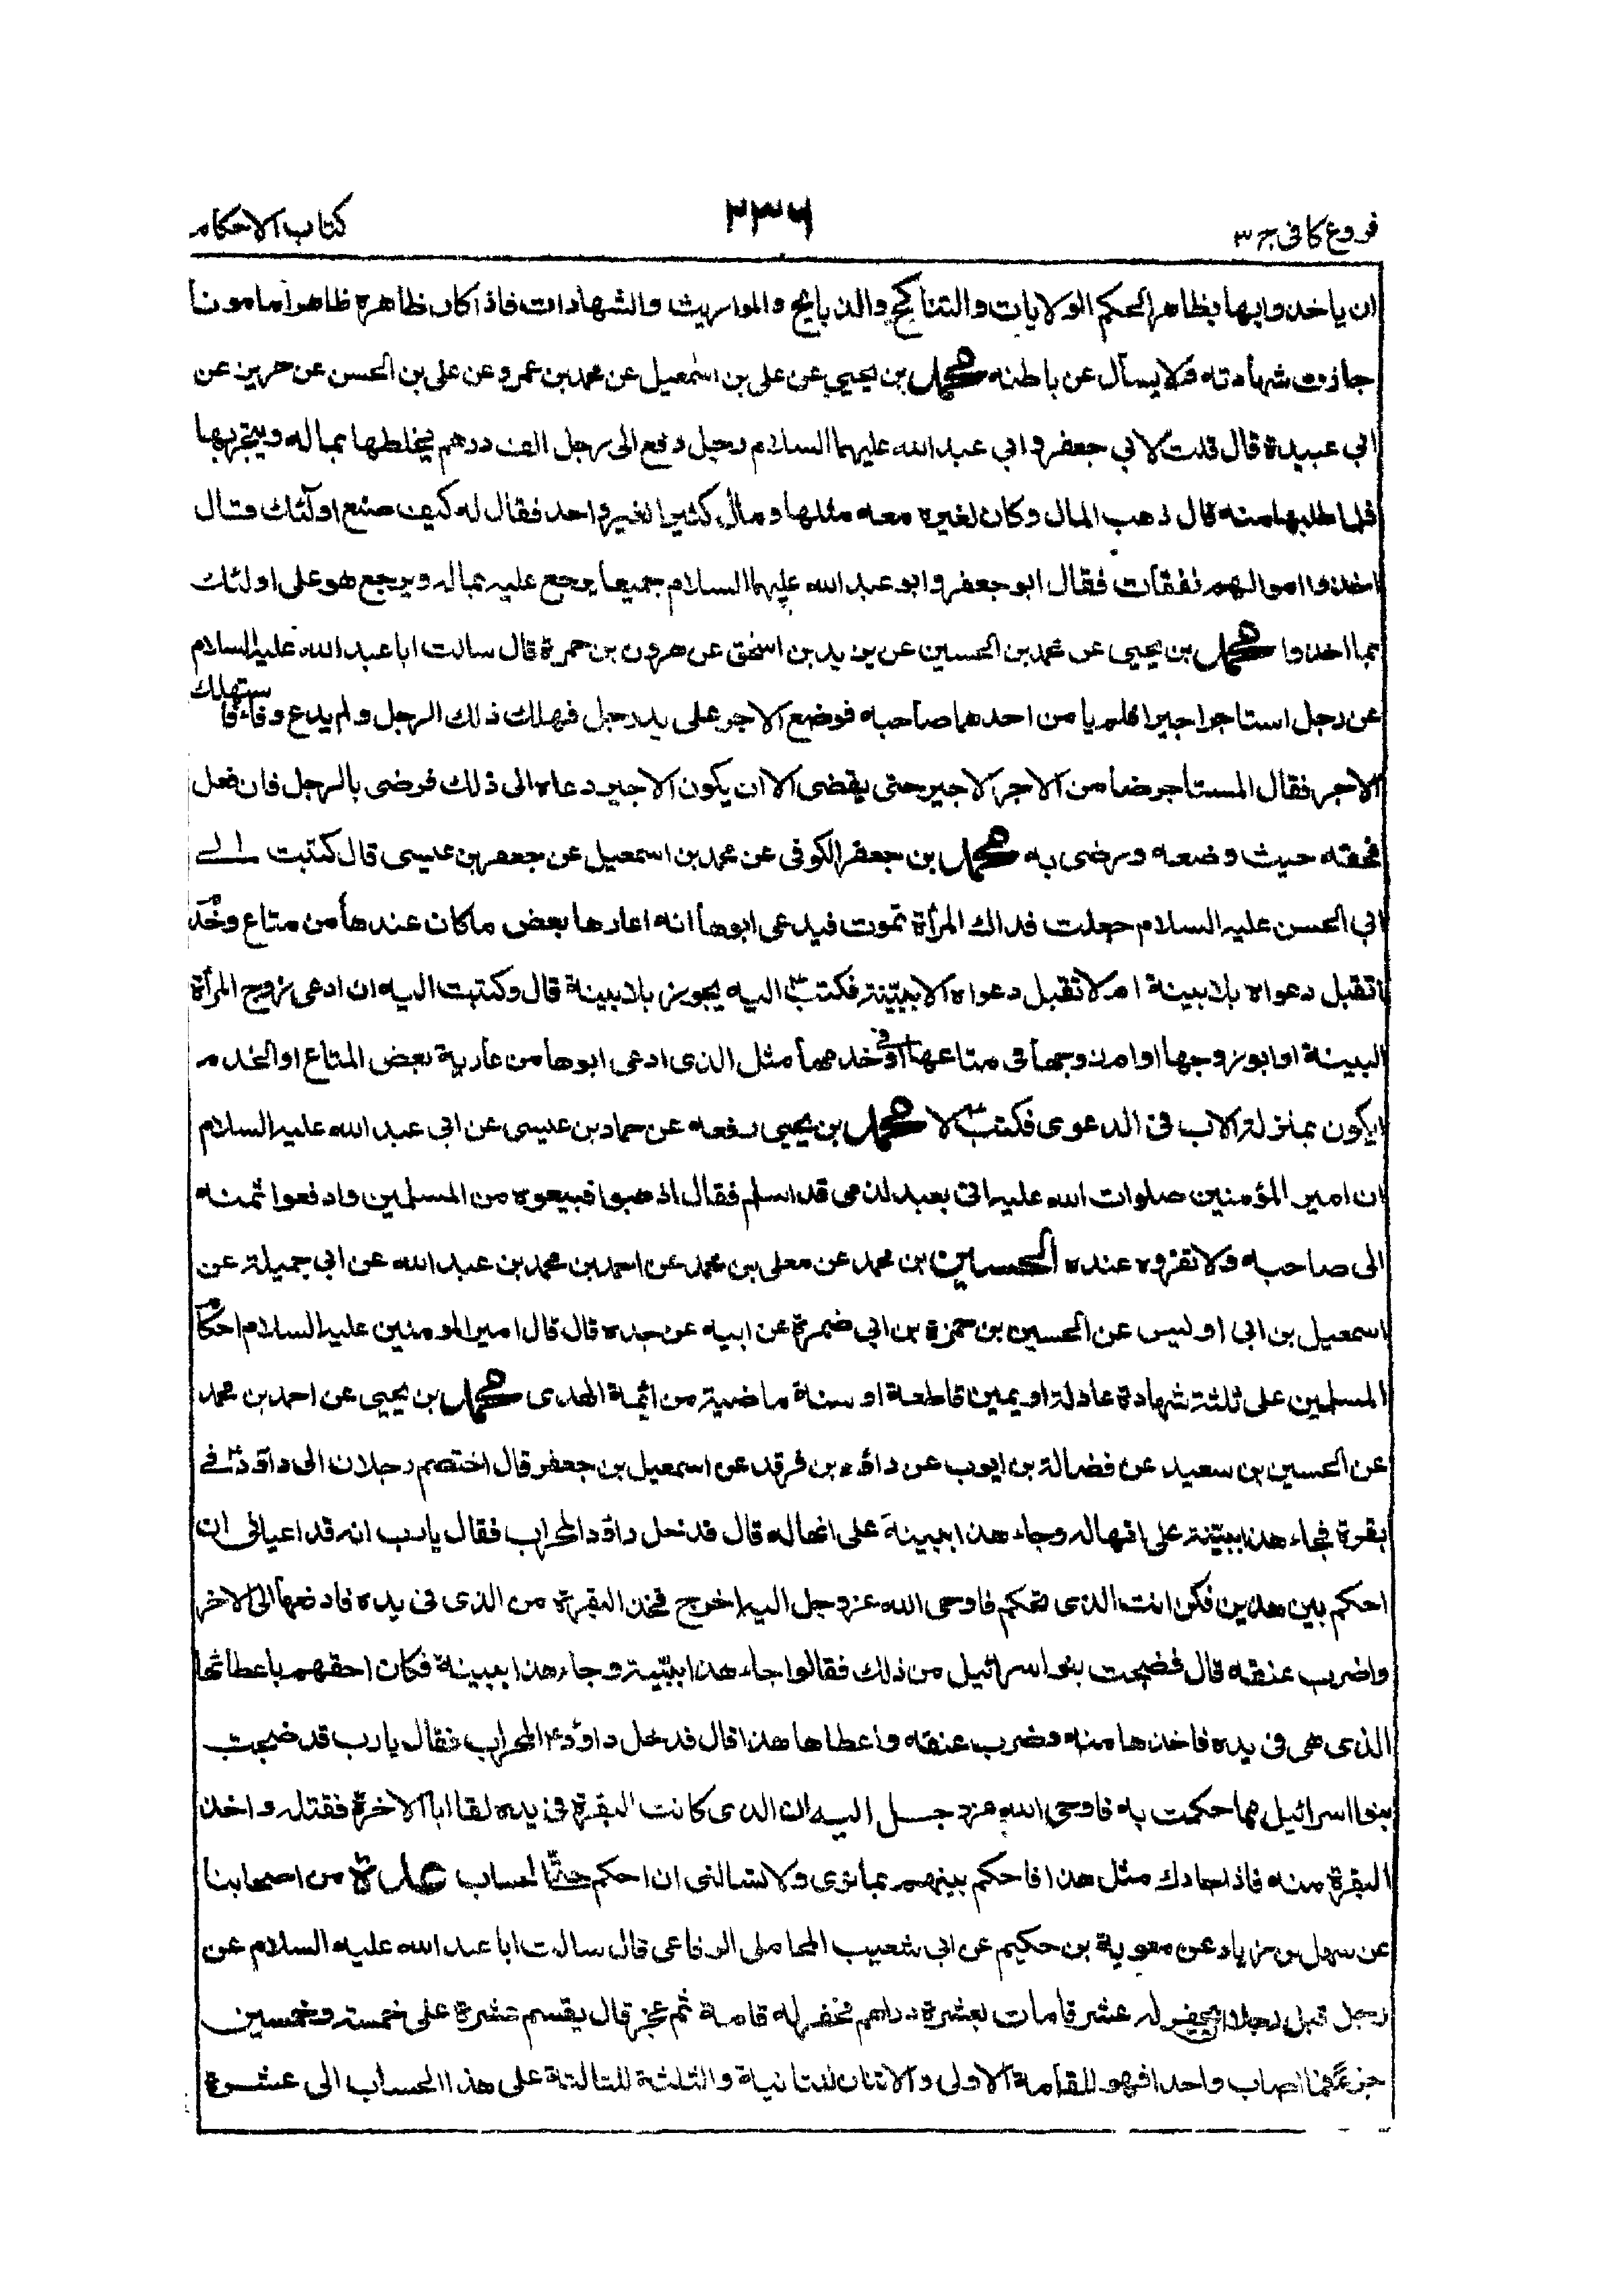 فروع كافى ج ٣
٢٣٦
كتاب الاحكام
ان ياخذوا بها بظاهر الحكم الولايات والتناكح والذبايح والمواريث والشهادات فاذا كان ظاهره ظاهرا مامونا
جازت شهادته ولا يسأل عن باطنه محمد بن يحيى عن على بن اسمعيل عن محمد بن عمرو عن على بن الحسن عن حريز عن
ابي عبيدة قال قلت لابي جعفر وابي عبد الله عليهما السلام رجل دفع الى رجل الف درهم يخلطها بماله ويتجر بها
فلما طلبها منه قال ذهب المال وكان لغيره معه مثلها ومال كثير لغير واحد فقال له كيف صنع اولئك قال
اخذوا اموالهم نفقات فقال ابو جعفر وابو عبد الله عليهما السلام جميعا يرجع عليه بماله ويرجع هو على اولئك
بما اخذوا محمد بن يحيى عن محمد بن الحسين عن يزيد بن اسحق عن هرون بن حمزة قال سالت ابا عبد الله عليه السلام
عن رجل استاجر اجيرا فلم يامن احدهما صاحبه فوضع الاجر على يد رجل فهلك ذلك الرجل ولم يدع وفاء فاستهلك
الاجر فقال المستاجر ضامن الاجر الاجير حتى يقضى الا ان يكون الاجير دعاه الى ذلك فرضى بالرجل فان فعل
فحقه حيث وضعه ورضى به محمد بن جعفر الكوفى عن محمد بن اسمعيل عن جعفر بن عيسى قال كتبت الى
ابي الحسن عليه السلام جعلت فداك المرأة تموت فيدعى ابوها انه اعارها بعض ما كان عندها من متاع وخدم
اتقبل دعواه بلا بينة ام لا تقبل دعواه الا ببينة فكتب اليه يجوز بلا بينة قال وكتبت اليه ان ادعى زوج المرأة
البينة او ابو زوجها او ام زوجها فى متاعها او فى خدمها مثل الذى ادعى ابوها من عارية بعض المتاع او الخدم
ايكون بمنزلة الاب فى الدعوى فكتب لا محمد بن يحيى رفعه عن حماد بن عيسى عن ابى عبد الله عليه السلام
ان امير المؤمنين صلوات الله عليه اتى بعبد لذمى قد اسلم فقال اذهبوا فبيعوه من المسلمين وادفعوا ثمنه
الى صاحبه ولا تقروه عنده الحسين بن محمد عن معلى بن محمد عن احمد بن محمد بن عبد الله عن ابي جميلة عن
اسمعيل بن ابى اويس عن الحسين بن حمزة بن ابي ضمرة عن ابيه عن جده قال قال امير المومنين عليه السلام احكام
المسلمين على ثلثة شهادة عادلة او يمين قاطعة او سنة ماضية من ائمة الهدى محمد بن يحيى عن احمد بن محمد
عن الحسين بن سعيد عن فضالة بن ايوب عن داود بن فرقد عن اسمعيل بن جعفر قال اختصم رجلان الى داود فى
بقرة فجاء هذا ببينة على انها له وجاء هذا ببينة على انها له قال فدخل داود المحراب فقال يا رب انه قد اعيانى ان
احكم بين هذين فكن انت الذى تحكم فاوحى الله عز وجل اليه اخرج فخذ البقرة من الذى فى يده فادفعها الى الاخر
واضرب عنقه قال فضجت بنو اسرائيل من ذلك فقالوا جاء هذا ببينة وجاء هذا ببينة فكان احقهم باعطائها
الذى هى فى يده فاخذها منه وضرب عنقه واعطاها هذا قال فدخل داود ع المحراب فقال يا رب قد ضجت
بنو اسرائيل مما حكمت به فاوحى الله عز وجل اليه ان الذى كانت البقرة فى يده لقا ابا الاخر فقتله واخذ
البقرة منه فاذا جاءك مثل هذا فاحكم بينهم بما ترى ولا تسالنى ان احكم حتى الحساب عدة من اصحابنا
عن سهل بن زياد عن معوية بن حكيم عن ابى شعيب المحاملى الرفاعى قال سالت ابا عبد الله عليه السلام عن
رجل قبل رجلا يحفر له عشر قامات بعشرة دراهم فحفر له قامة ثم عجز قال يقسم عشرة على خمسة وخمسين
جزءا فما اصاب واحدا فهو للقامة الاولى والاثنان للثانية والثلثة للثالثة على هذا الحساب الى عشرة